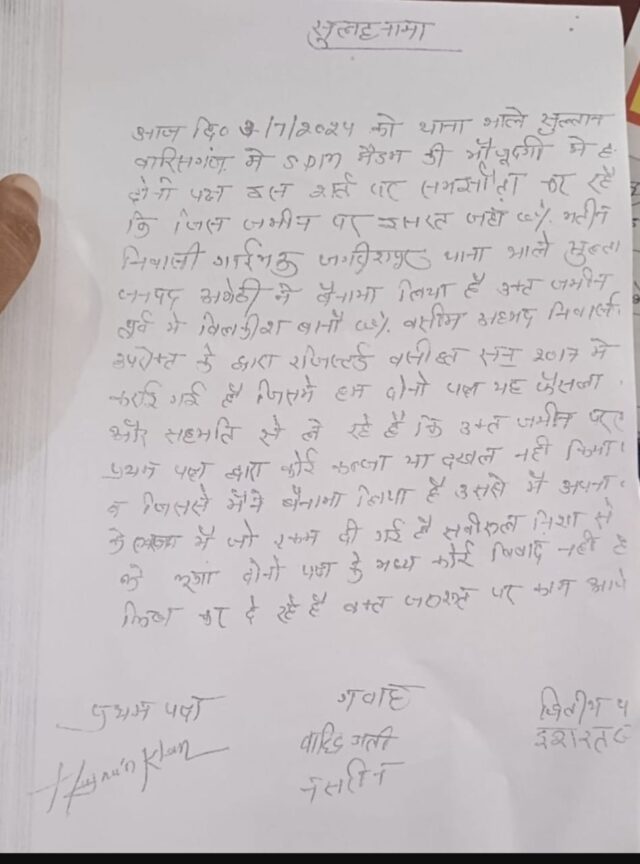 सुलहनामा
आज दि० 2/7/2024 को थाना भाले सुल्तान
वारिसगंज में SDM मैडम की मौजूदगी में ह
दोनो पक्ष इस शर्त पर समझौता कर रहे
कि जिस जमीन पर इसरत जहां w/o मतीन
निवासी थाना भाले सुल्ता
जनपद अमेठी ने बैनामा लिया है उक्त जमीन
पूर्व मे विलकीश बानों w/o वसीम अहमद निवासी
उपरोक्त के द्वारा रजिस्टर्ड वसीयत सन् 2017 मे
कराई गई है जिसमे हम दोनो पक्ष यह फैसला
और सहमति से ले रहे है कि उक्त जमीन पर
प्रथम पक्ष द्वारा कोई कब्जा या दखल नही किया
व जिससे मैंने बैनामा लिया है उससे मै अपना
मे जो रकम दी गई है निशा से
ले लूंगा दोनो पक्ष के मध्य कोई विवाद नही है
लिख कर दे रहे है वक्त जरूरत पर काम आये
प्रथम पक्ष
गवाह
द्वितीय प
Khan
इशरत
नसरीन